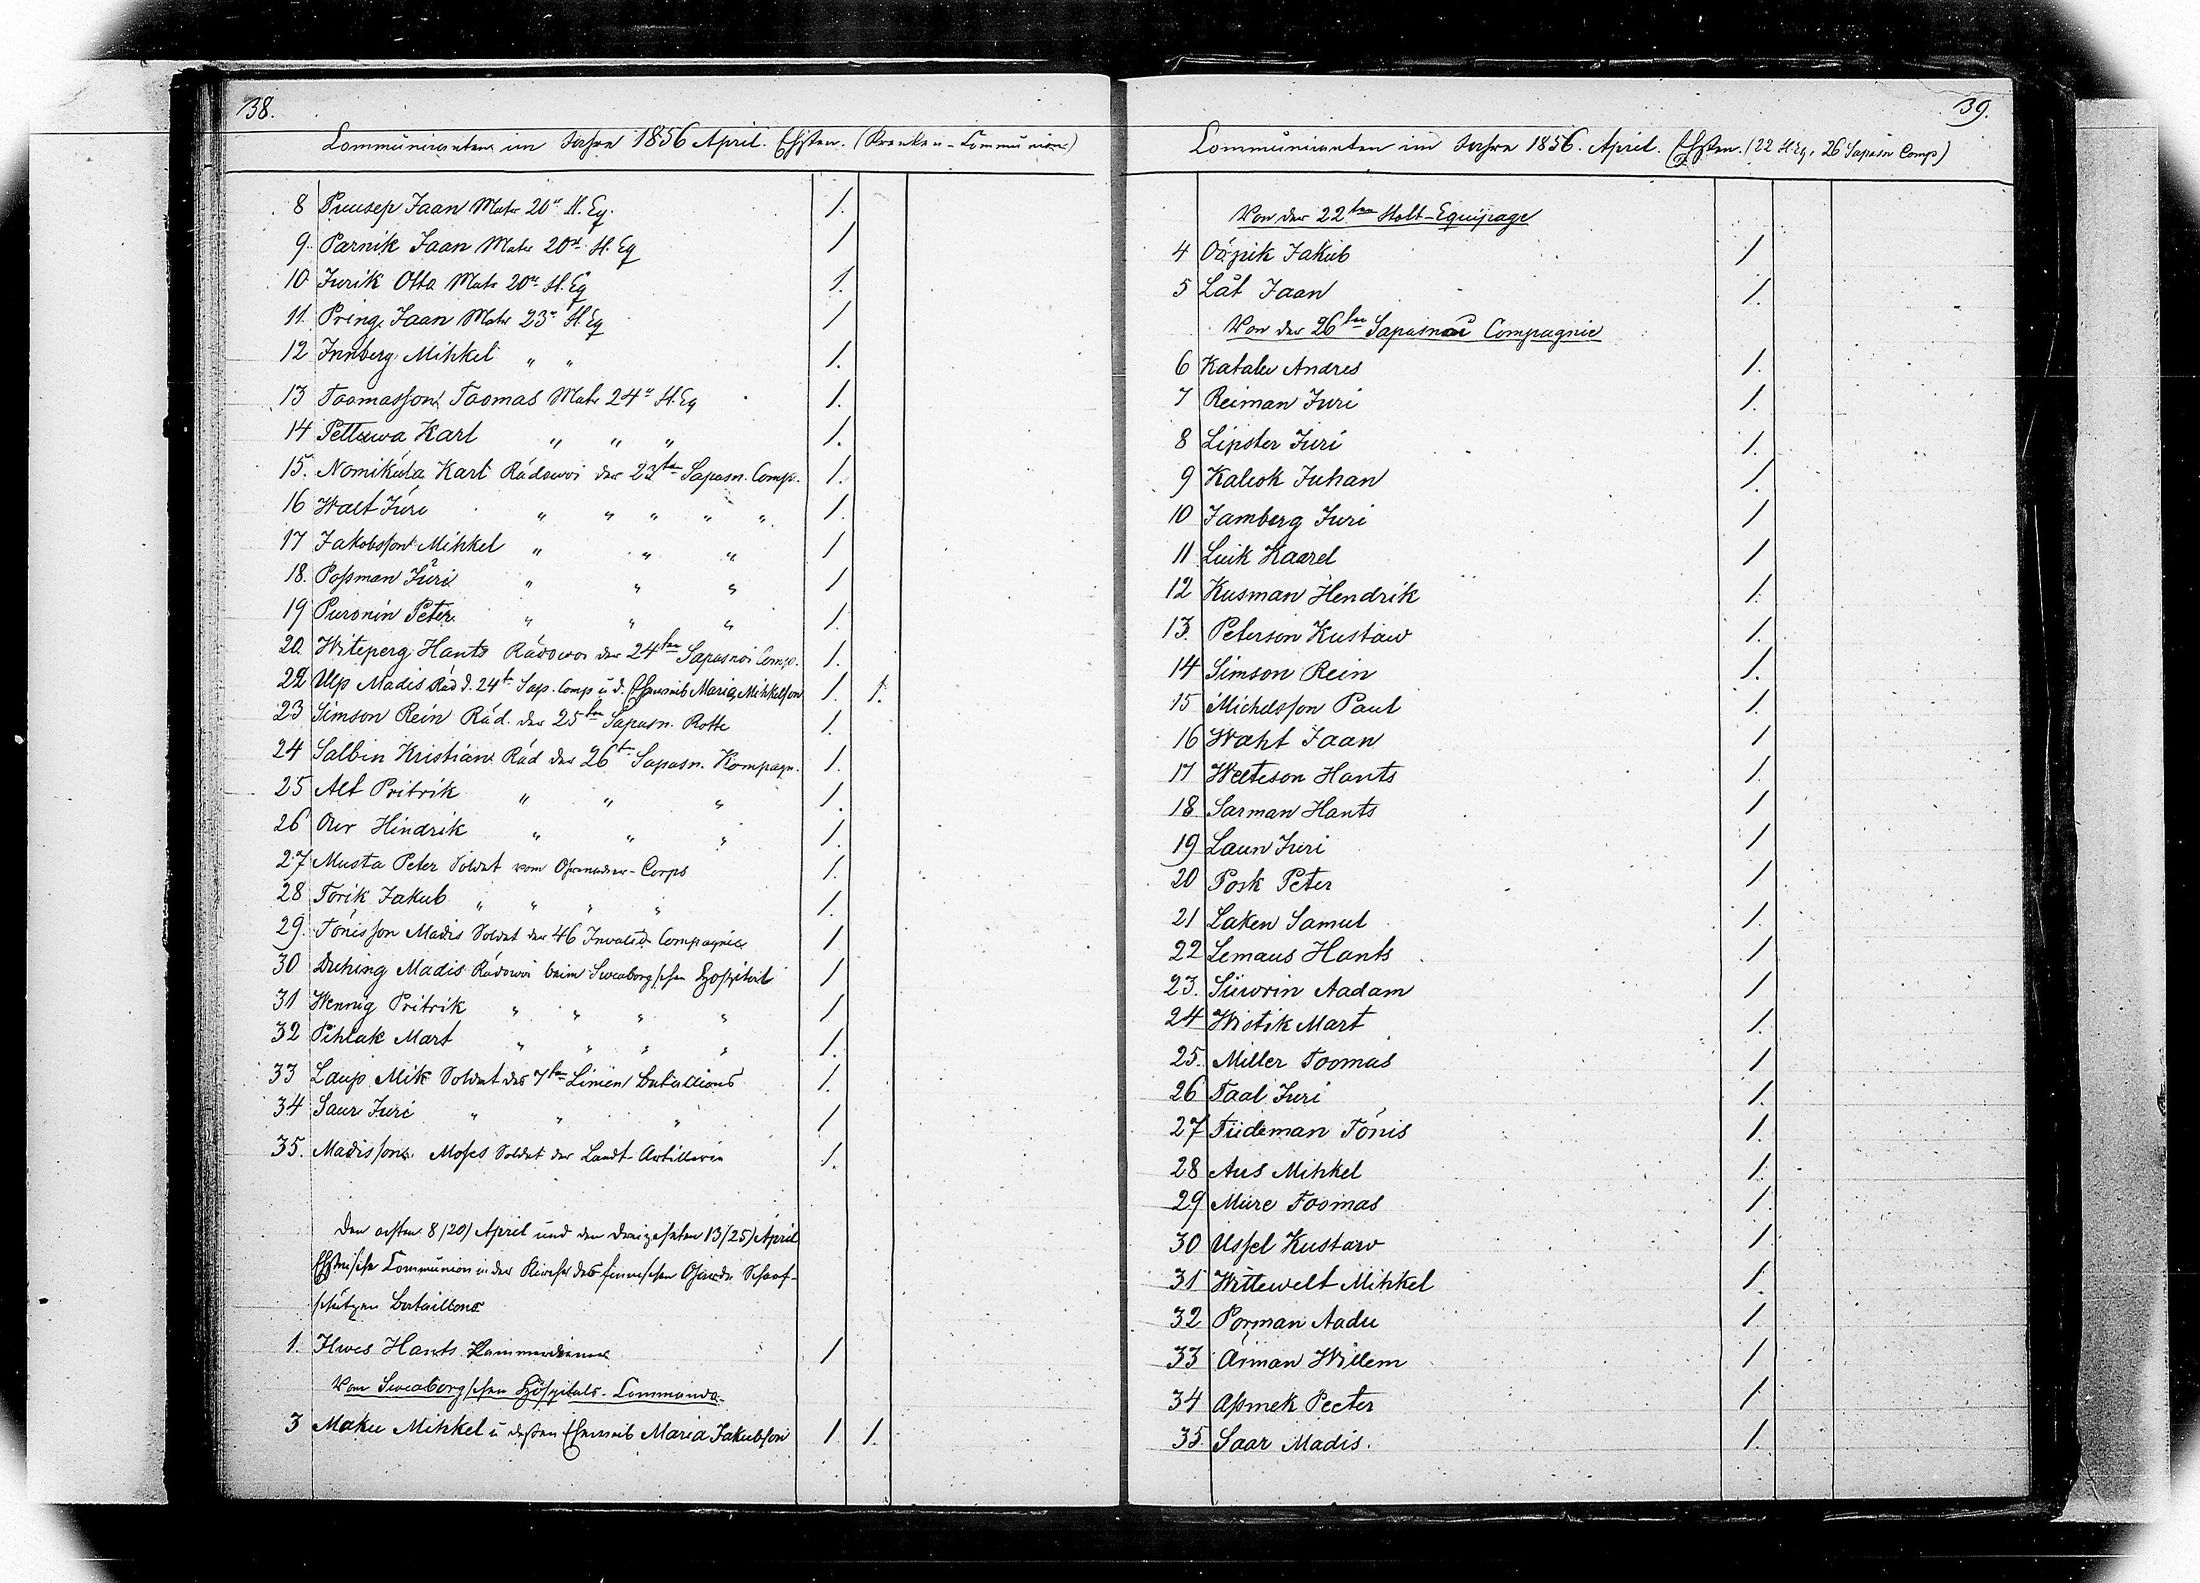 38.
Communicanten im Jahre 1856 April. Ehsten. (Kranken-Communion)
8 Pruusep Jaan Matr 20r Fl. Eq. 1.
9. Parnik Jaan Matr 20r Fl. Eq 1
10 Jurik Otto Matr 20r Fl. Eq 1.
11. Pring Jaan Matr 23r Fl. Eq 1
12 Innberg Mihkel " " 1.
13 Toomasson Toomas Matr 24r Fl. Eq 1.
14 Pettawa Karl " " " 1.
15. Nomikula Karl Rädowoi der 23ten Sapasn. Comp. 1.
16 Walt Jüri " " " " " 1.
17 Jakobsson Mihkel " " " 1
18. Poßman Jüri " " " 1
19 Puronin Peter " " " 1.
20. Witeperg Hants Rädowoi der 24ten Sapasnoi Comp. 1.
22 Ulp Madis Räd d. 24t Sap. Comp u d. Eheweib Maria Mihkelson 1. 1.
23 Simson Rein Räd. der 25ten Sapasn. Rotte 1.
24 Salbin Kristian Räd der 26ten Sapasn. Kompagn. 1.
25 Alt Pritrik " " " 1.
26 Orr Hindrik " " " 1.
27 Musta Peter Soldat vom Grenadier-Corps 1.
28 Torik Jakub " " " " 1.
29. Tönisson Madis Soldat der 46 Invalid Compagnie 1
30 Duhing Madis Rädowoi beim Sweaborgschen Hospital 1
31 Wennig Pritrik " " " " 1
32 Pihlak Mart " " " " 1.
33 Laup Mik Soldat des 7ten Linien Bataillons 1.
34 Saur Juri " " " 1
35. Madisson Moses Soldat der Landt-Artillerie 1.
Den achten 8/20) April und den dreizehnten 13/25) April
Ehstnische Communion in der Kirche des finnischen Garde Scharf-
schützen Bataillons
1. Ilwes Hants Kammerdiener 1
Vom Sweaborgschen Hospitals-Commando
3 Maku Mihkel u dessen Eheweib Maria Jakubson 1 1.
39.
Communicanten im Jahre 1856. April. Ehsten. (22 Fl. Eq, 26 Sapasn Comp)
Von der 22ten Flott-Equipage
4 Oöpik Jakub 1
5 Lät Jaan 1.
Von der 26ten Sapasnoi Compagnie
6 Katale Andres 1.
7 Reiman Juri 1.
8 Lipster Juri 1.
9 Kaliok Juhan 1.
10 Jamberg Juri 1
11 Luik Kaarel 1
12 Kusman Hendrik 1.
13. Peterson Kustaw 1.
14 Simson Rein 1.
15 Michelsson Paul 1.
16 Waht Jaan 1
17 Welteson Hants 1
18 Sarman Hants 1
19 Laun Juri 1
20 Posk Peter 1
21 Laken Samul 1.
22 Lemaus Hants 1
23. Süwrin Aadam 1
24 Wistik Mart 1.
25. Miller Toomas 1
26 Taal Juri 1.
27 Tiideman Tönis 1.
28 Aus Mihkel 1.
29 Mure Toomas 1.
30 Ussel Kustaw 1
31 Wittewelt Mihkel 1.
32 Porman Aadu 1.
33 Arman Willem 1
34 Aßmek Peeter 1
35. Saar Madis. 1.